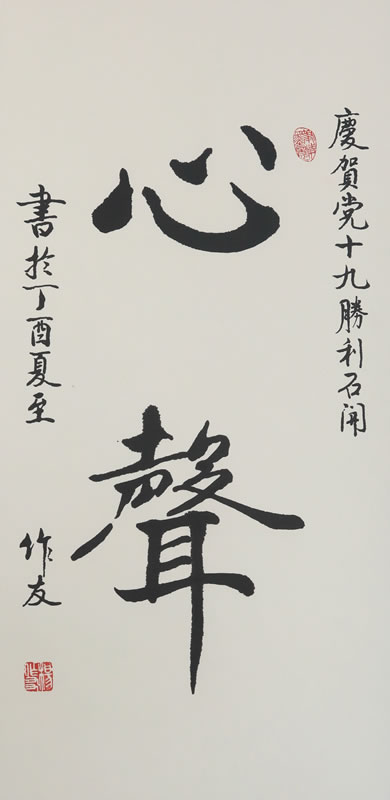 慶賀党十九勝利石開
心聲
書於丁酉夏至
作友